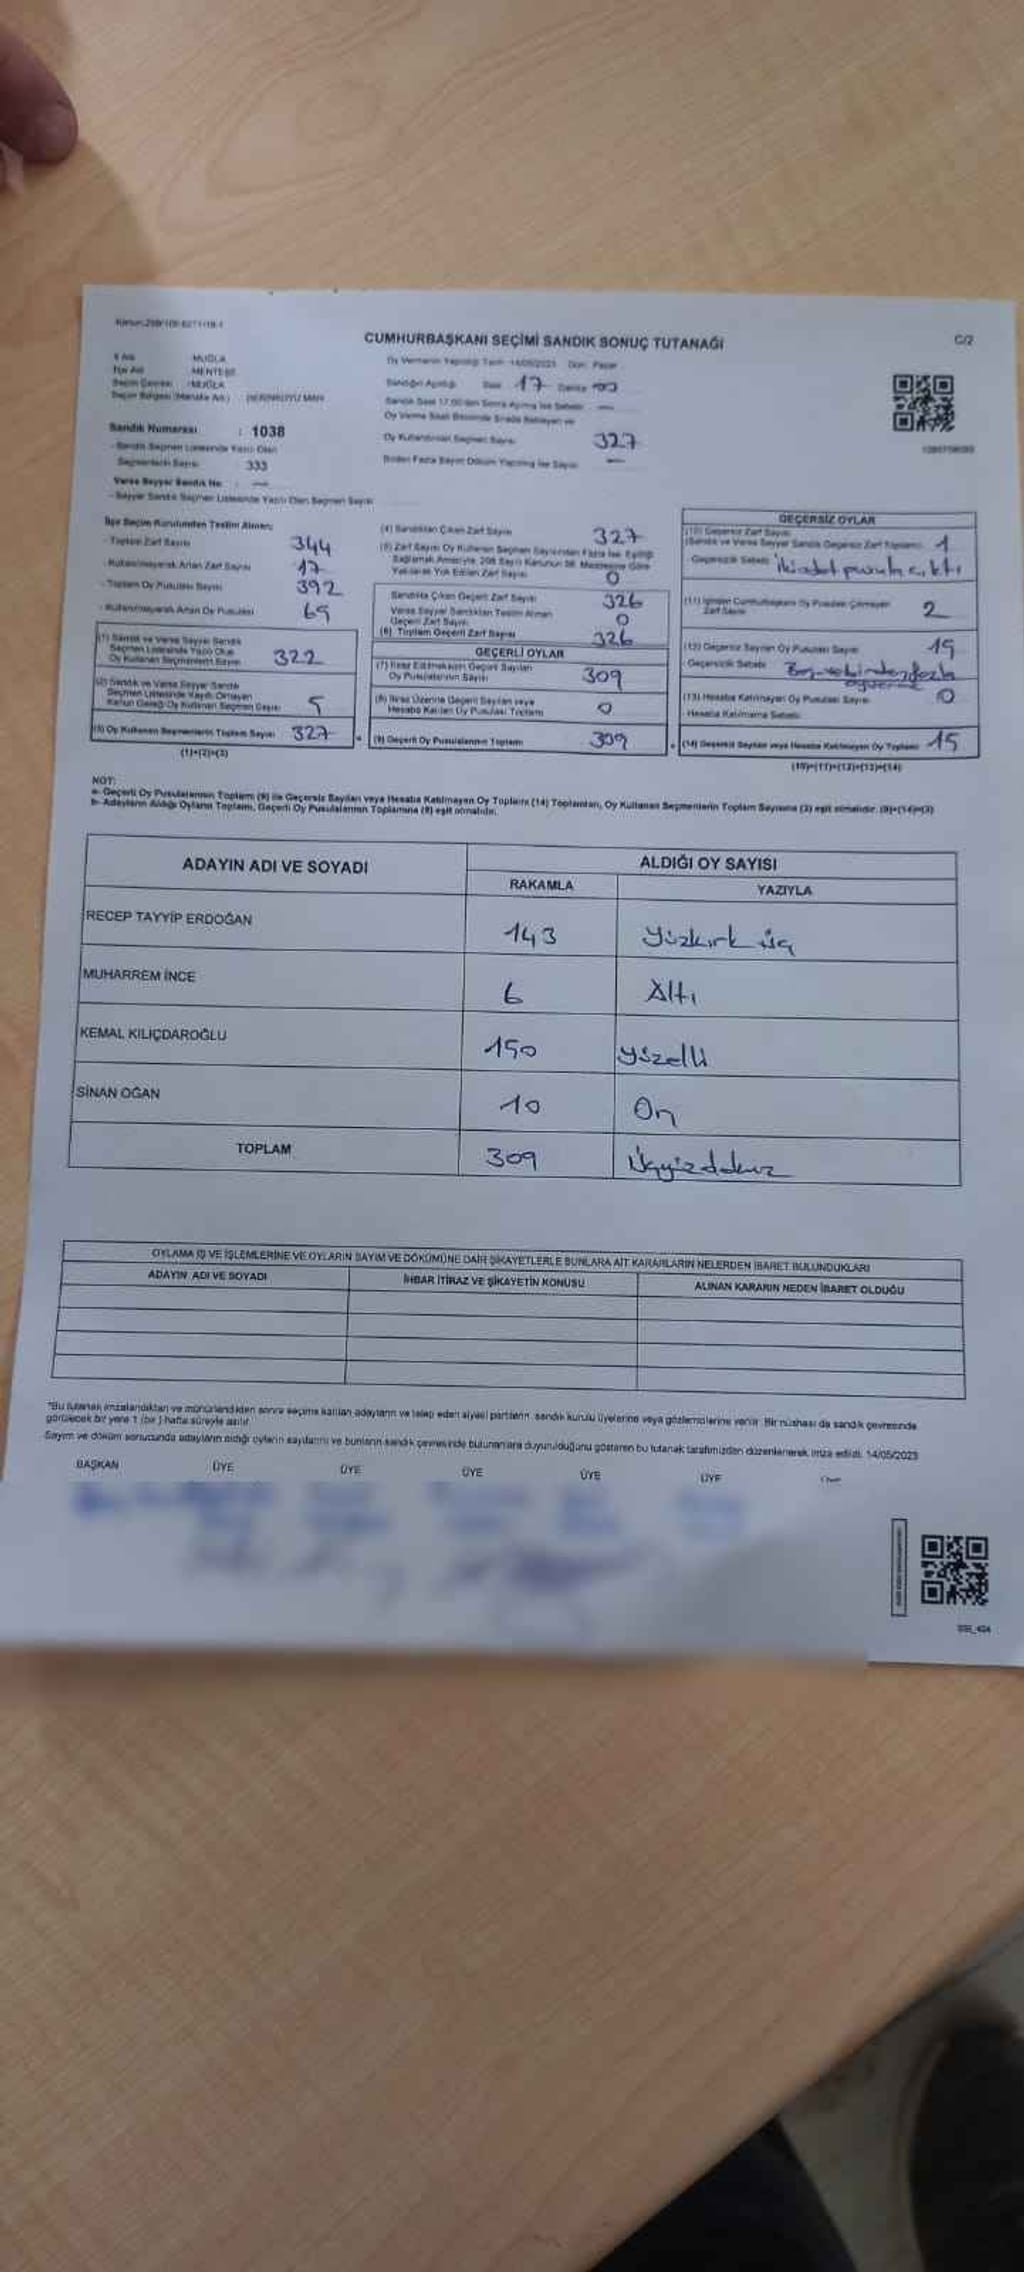 CUMHURBAŞKANI SEÇİMİ SANDIK SONUÇ TUTANAĞI
C/2
İl Adı : MUĞLA
İlçe Adı : MENTEŞE
Seçim Çevresi : MUĞLA
Oy Vermenin Yapıldığı Tarih : 14/05/2023 Gün: Pazar
Sandığın Açıldığı Saat 17 Dakika
Sandık Numarası : 1038
- Sandık Seçmen Listesinde Yazılı Olan
Seçmenlerin Sayısı 333
Oy Kullandırılan Seçmen Sayısı 327
Birden Fazla Sayım Döküm Yapılmış İse Sayısı —
Varsa Seyyar Sandık No : —
- Seyyar Sandık Seçmen Listesinde Yazılı Olan Seçmen Sayısı
İlçe Seçim Kurulundan Teslim Alınan:
- Toplam Zarf Sayısı 344
- Kullanılmayarak Artan Zarf Sayısı 17
- Toplam Oy Pusulası Sayısı 392
- Kullanılmayarak Artan Oy Pusulası 65
(1) Sandık ve Varsa Seyyar Sandık
Seçmen Listesinde Yazılı Olup
Oy Kullanan Seçmenlerin Sayısı 322
(2) Sandık ve Varsa Seyyar Sandık
Seçmen Listesinde Kayıtlı Olmayan
Kanun Gereği Oy Kullanan Seçmen Sayısı 5
(3) Oy Kullanan Seçmenlerin Toplam Sayısı 327
(1)+(2)=(3)
(4) Sandıktan Çıkan Zarf Sayısı 327
(5) Zarf Sayısı Oy Kullanan Seçmen Sayısından Fazla İse, Eşitliği
Sağlamak Amacıyla, 298 Sayılı Kanunun 98. Maddesine Göre
Yakılarak Yok Edilen Zarf Sayısı 0
Sandıkta Çıkan Geçerli Zarf Sayısı 326
Varsa Seyyar Sandıktan Teslim Alınan
Geçerli Zarf Sayısı 0
(6) Toplam Geçerli Zarf Sayısı 326
GEÇERLİ OYLAR
(7) İtiraz Edilmeksizin Geçerli Sayılan
Oy Pusulalarının Sayısı 309
(8) İtiraz Üzerine Geçerli Sayılan veya
Hesaba Katılan Oy Pusulası Toplamı 0
(9) Geçerli Oy Pusulalarının Toplamı 309
GEÇERSİZ OYLAR
(10) Geçersiz Zarf Sayısı
(Sandık ve Varsa Seyyar Sandık Geçersiz Zarf Toplamı) 1
Geçersizlik Sebebi İki adet pusula çıktı
(11) İçinden Cumhurbaşkanı Oy Pusulası Çıkmayan
Zarf Sayısı 2
(12) Geçersiz Sayılan Oy Pusulası Sayısı 15
Geçersizlik Sebebi
(13) Hesaba Katılmayan Oy Pusulası Sayısı 0
- Hesaba Katılmama Sebebi
(14) Geçersiz Sayılan veya Hesaba Katılmayan Oy Toplamı 15
(10)+(11)+(12)+(13)=(14)
NOT:
a- Geçerli Oy Pusulalarının Toplamı (9) ile Geçersiz Sayılan veya Hesaba Katılmayan Oy Toplamı (14) Toplamları, Oy Kullanan Seçmenlerin Toplam Sayısına (3) eşit olmalıdır. (9)+(14)=(3)
b- Adayların Aldığı Oyların Toplamı, Geçerli Oy Pusulalarının Toplamına (9) eşit olmalıdır.
ADAYIN ADI VE SOYADI
ALDIĞI OY SAYISI
RAKAMLA
YAZIYLA
RECEP TAYYİP ERDOĞAN 143 Yüzkırk üç
MUHARREM İNCE 6 Altı
KEMAL KILIÇDAROĞLU 150 Yüzelli
SİNAN OĞAN 10 On
TOPLAM 309 Üçyüzdokuz
OYLAMA İŞ VE İŞLEMLERİNE VE OYLARIN SAYIM VE DÖKÜMÜNE DAİR ŞİKAYETLERLE BUNLARA AİT KARARLARIN NELERDEN İBARET BULUNDUKLARI
ADAYIN ADI VE SOYADI
İHBAR İTİRAZ VE ŞİKAYETİN KONUSU
ALINAN KARARIN NEDEN İBARET OLDUĞU
*Bu tutanak imzalandıktan ve mühürlendikten sonra seçime katılan adayların ve talep eden siyasi partilerin sandık kurulu üyelerine veya gözlemcilerine verilir. Bir nüshası da sandık çevresinde
görülecek bir yere 1 (bir) hafta süreyle asılır.
Sayım ve döküm sonucunda adayların aldığı oyların sayılarını ve bunların sandık çevresinde bulunanlara duyurulduğunu gösteren bu tutanak tarafımızdan düzenlenerek imza edildi. 14/05/2023
BAŞKAN ÜYE ÜYE ÜYE ÜYE ÜYE